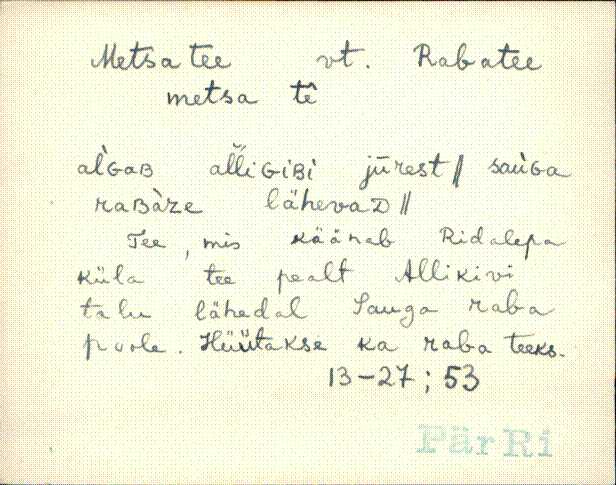 Metsa tee vt. Rabatee
metsa tê
al̀GaB al̆l̆iGiBì jūrest // sau̇Ga
raBàze lähevaD //
Tee, mis käänab Ridalepa
küla tee pealt Allikivi
talu lähedal Sauga raba
poole. Hüütakse ka raba teeks.
13-27; 53
PärRi